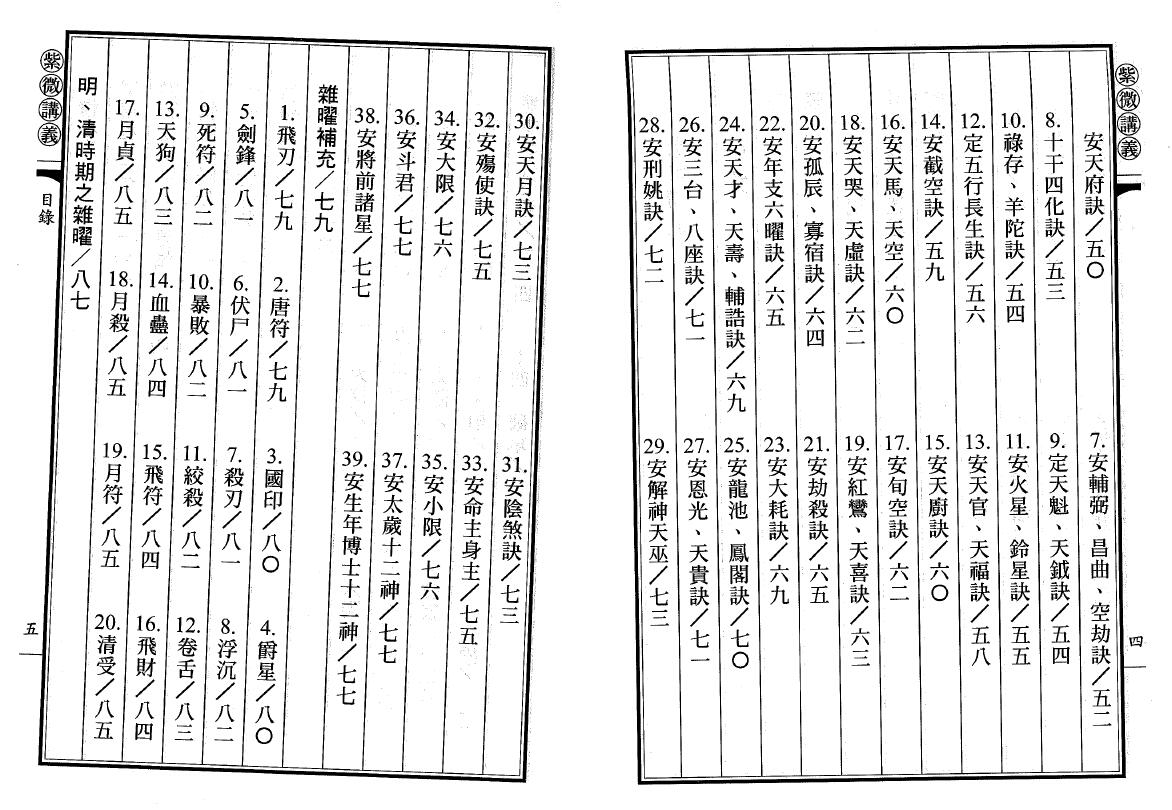 紫微講義
四
安天府訣／五〇
7.安輔弼、昌曲、空劫訣／五二
8.十干四化訣／五三
9.定天魁、天鉞訣／五四
10.祿存、羊陀訣／五四
11.安火星、鈴星訣／五五
12.定五行長生訣／五六
13.安天官、天福訣／五八
14.安截空訣／五九
15.安天廚訣／六〇
16.安天馬、天空／六〇
17.安旬空訣／六二
18.安天哭、天虛訣／六二
19.安紅鸞、天喜訣／六三
20.安孤辰、寡宿訣／六四
21.安劫殺訣／六五
22.安年支六曜訣／六五
23.安大耗訣／六九
24.安天才、天壽、輔誥訣／六九
25.安龍池、鳳閣訣／七〇
26.安三台、八座訣／七一
27.安恩光、天貴訣／七一
28.安刑姚訣／七二
29.安解神天巫／七三
30.安天月訣／七三
31.安陰煞訣／七三
32.安殤使訣／七五
33.安命主身主／七五
34.安大限／七六
35.安小限／七六
36.安斗君／七七
37.安太歲十二神／七七
38.安將前諸星／七七
39.安生年博士十二神／七七
雜曜補充／七九
1.飛刃／七九
2.唐符／七九
3.國印／八〇
4.爵星／八〇
5.劍鋒／八一
6.伏尸／八一
7.殺刃／八一
8.浮沉／八二
9.死符／八二
10.暴敗／八二
11.絞殺／八二
12.卷舌／八三
13.天狗／八三
14.血蠱／八四
15.飛符／八四
16.飛財／八四
17.月貞／八五
18.月殺／八五
19.月符／八五
20.清受／八五
明、清時期之雜曜／八七
紫微講義
目錄
五